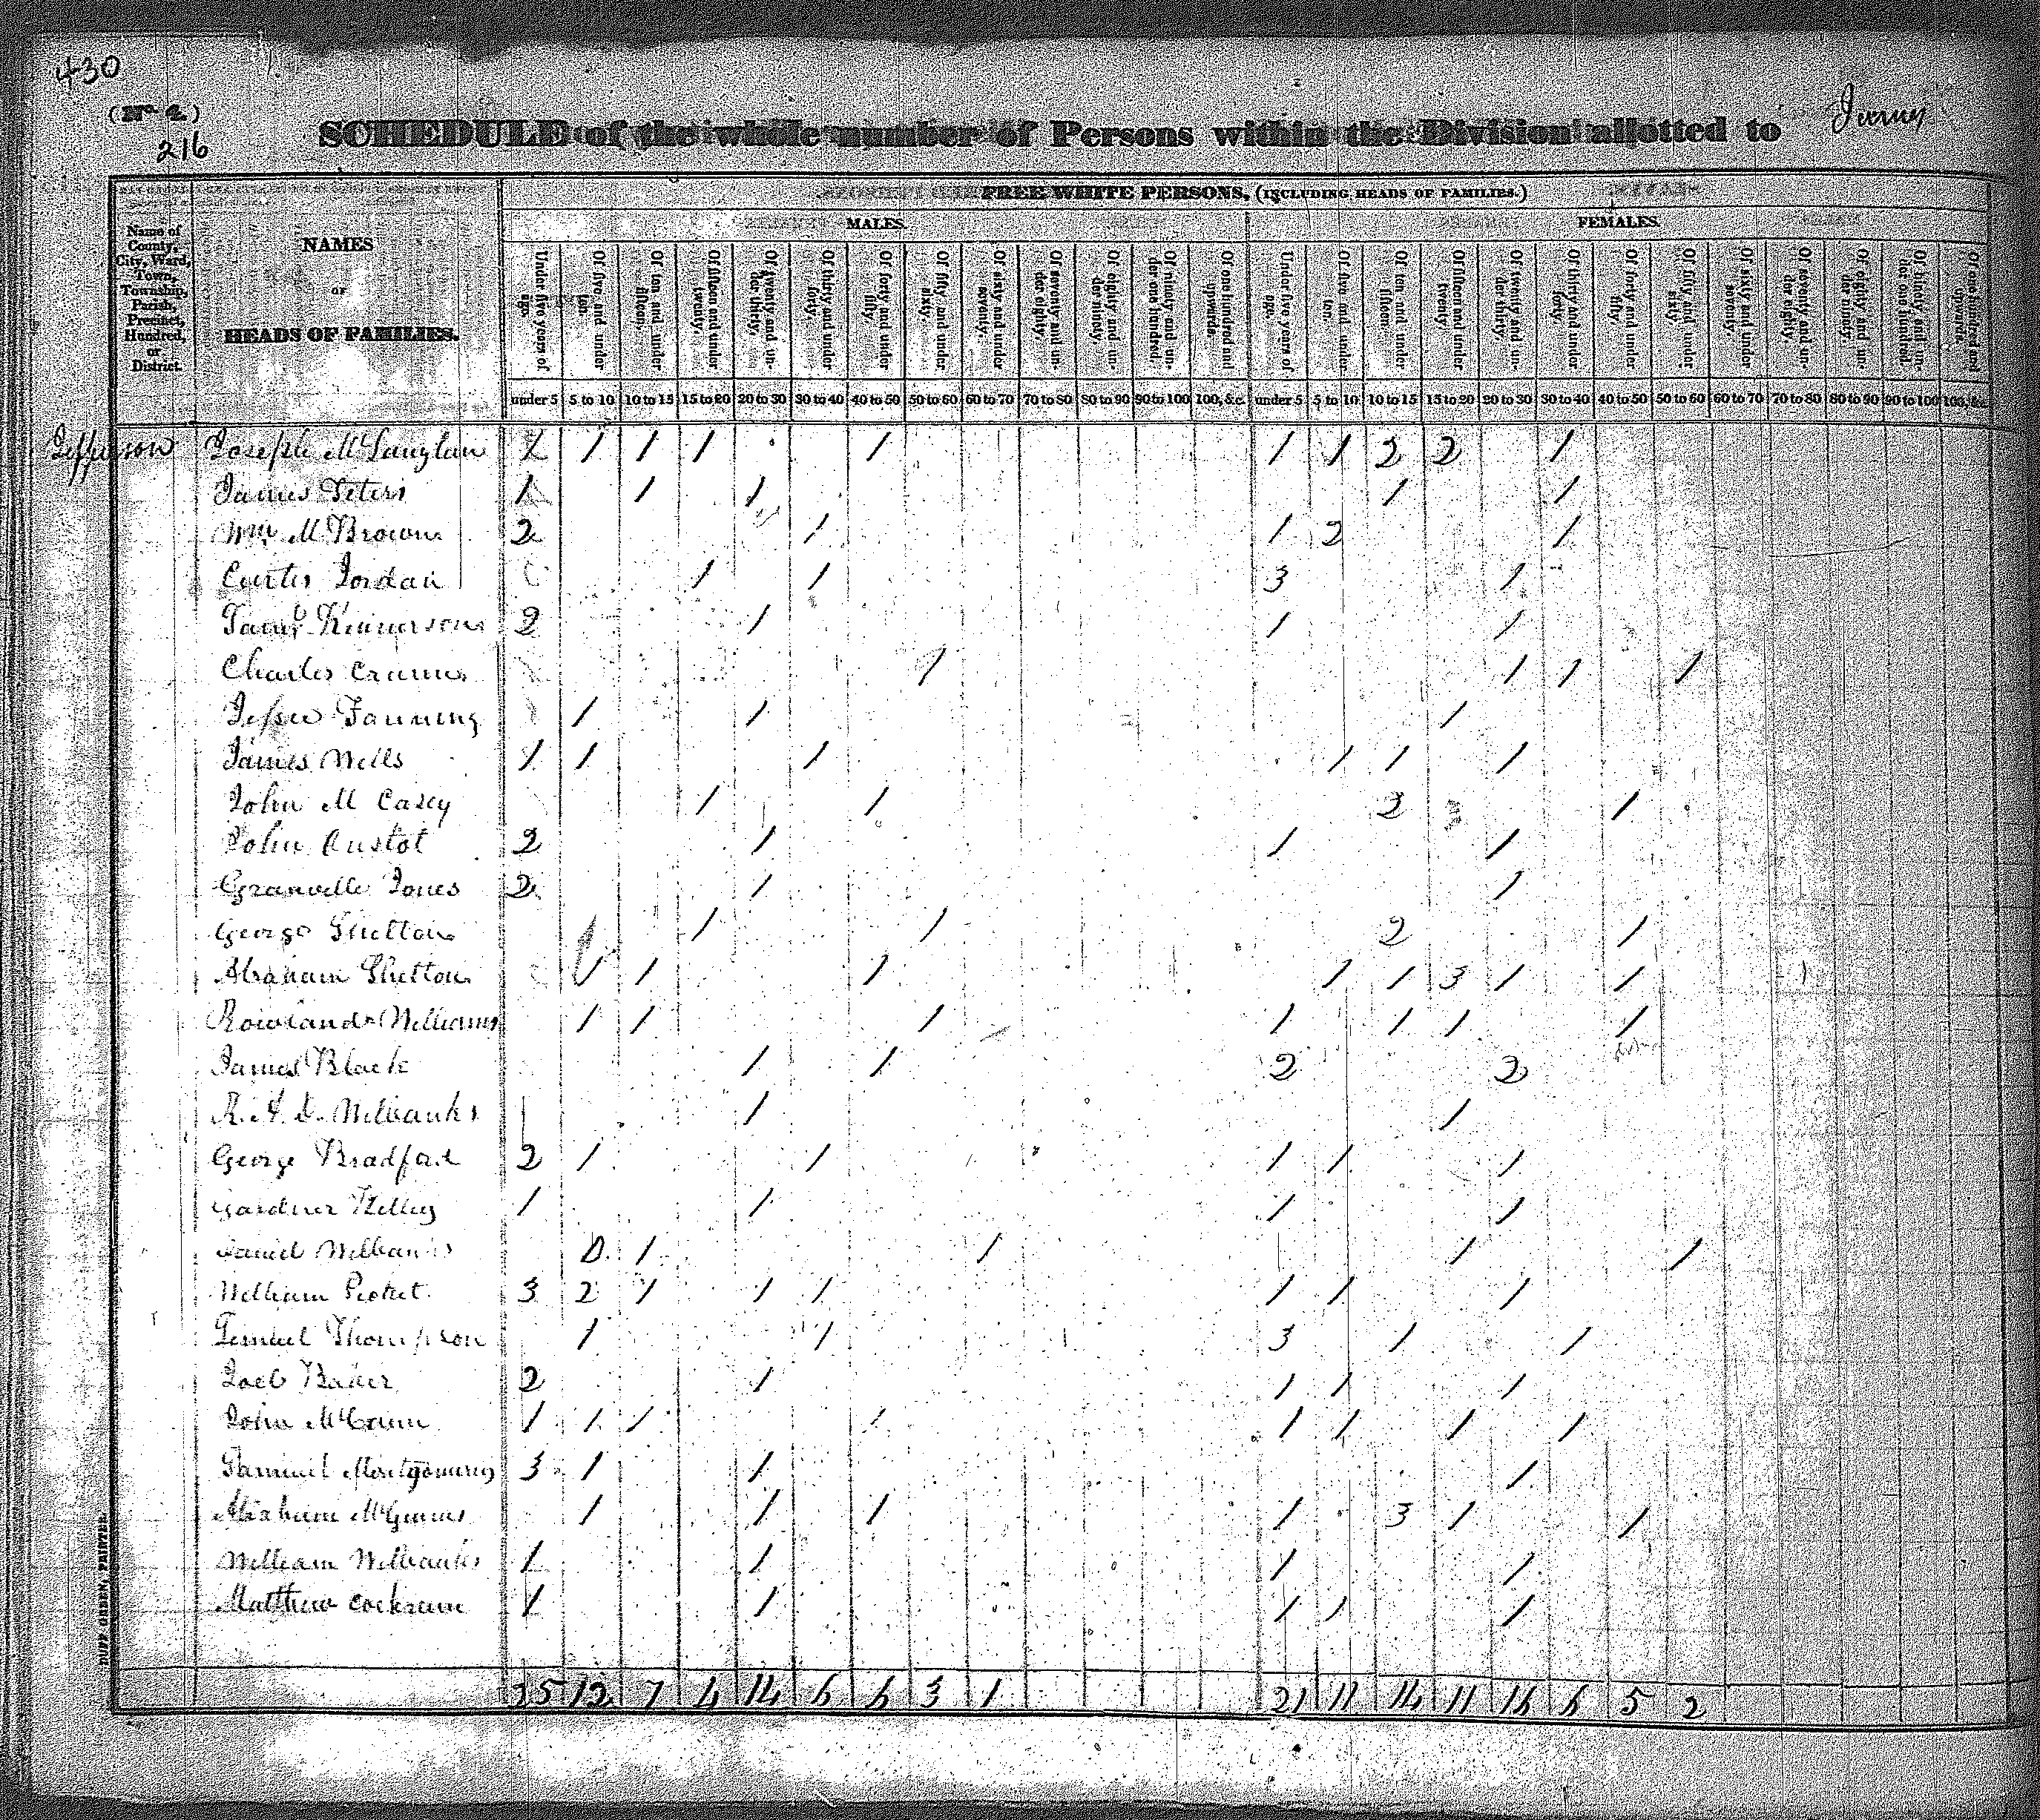 430
(No. 4.)
216
SCHEDULE of the whole number of Persons within the Division allotted to
FREE WHITE PERSONS, (INCLUDING HEADS OF FAMILIES.)
MALES. FEMALES.
Name of County, City, Ward, Town, Township, Parish, Precinct, Hundred, or District.
NAMES
OF
HEADS OF FAMILIES.
Under five years of age. Of five and under ten. Of ten and under fifteen. Of fifteen and under twenty. Of twenty and under thirty. Of thirty and under forty. Of forty and under fifty. Of fifty and under sixty. Of sixty and under seventy. Of seventy and under eighty. Of eighty and under ninety. Of ninety and under one hundred. Of one hundred and upwards. Under five years of age. Of five and under ten. Of ten and under fifteen. Of fifteen and under twenty. Of twenty and under thirty. Of thirty and under forty. Of forty and under fifty. Of fifty and under sixty. Of sixty and under seventy. Of seventy and under eighty. Of eighty and under ninety. Of ninety and under one hundred. Of one hundred and upwards.
under 5 5 to 10 10 to 15 15 to 20 20 to 30 30 to 40 40 to 50 50 to 60 60 to 70 70 to 80 80 to 90 90 to 100 100, &c. under 5 5 to 10 10 to 15 15 to 20 20 to 30 30 to 40 40 to 50 50 to 60 60 to 70 70 to 80 80 to 90 90 to 100 100, &c.
Jefferson Joseph 1 1 1 1 1 1 2 2 1
James Peters 1 1 1 1 1
Wm. M Brown 2 1 1 2 1
Curtis Jordan 1 1 3 1
2 1 1 1
Charles 1 1 1 1
Jesse Fanning 1 1 1
James Wells 1 1 1 1 1 1
John M Casey 1 1 1
John 2 1 1 1
Granville Jones 2 1 1
George Shelton 1 1 1 2 1
Abraham Shelton 1 1 1 1 1 3 1 1
Rowland Williams 1 1 1 1 1 1 1
James Black 1 1 2 2
R. A. D. Wilbanks 1 1
George Bradford 2 1 1 1 1 1
Gardner Kelley 1 1 1 1
Daniel Wilbanks 1 1 1 1
William Picket 3 2 1 1 1 1 1 1
Lemuel Thompson 1 1 3 1 1
Joel 2 1 1 1 1
John 1 1 1 1 1 1 1 1
Samuel Montgomery 3 1 1 1
Abraham 1 1 1 1 3 1 1
William Wilbanks 1 1 1 1
Matthew Cockrum 1 1 1 1 1
25 12 7 4 14 6 6 3 1 21 11 14 11 16 6 5 2
DUFF GREEN, PRINTER.